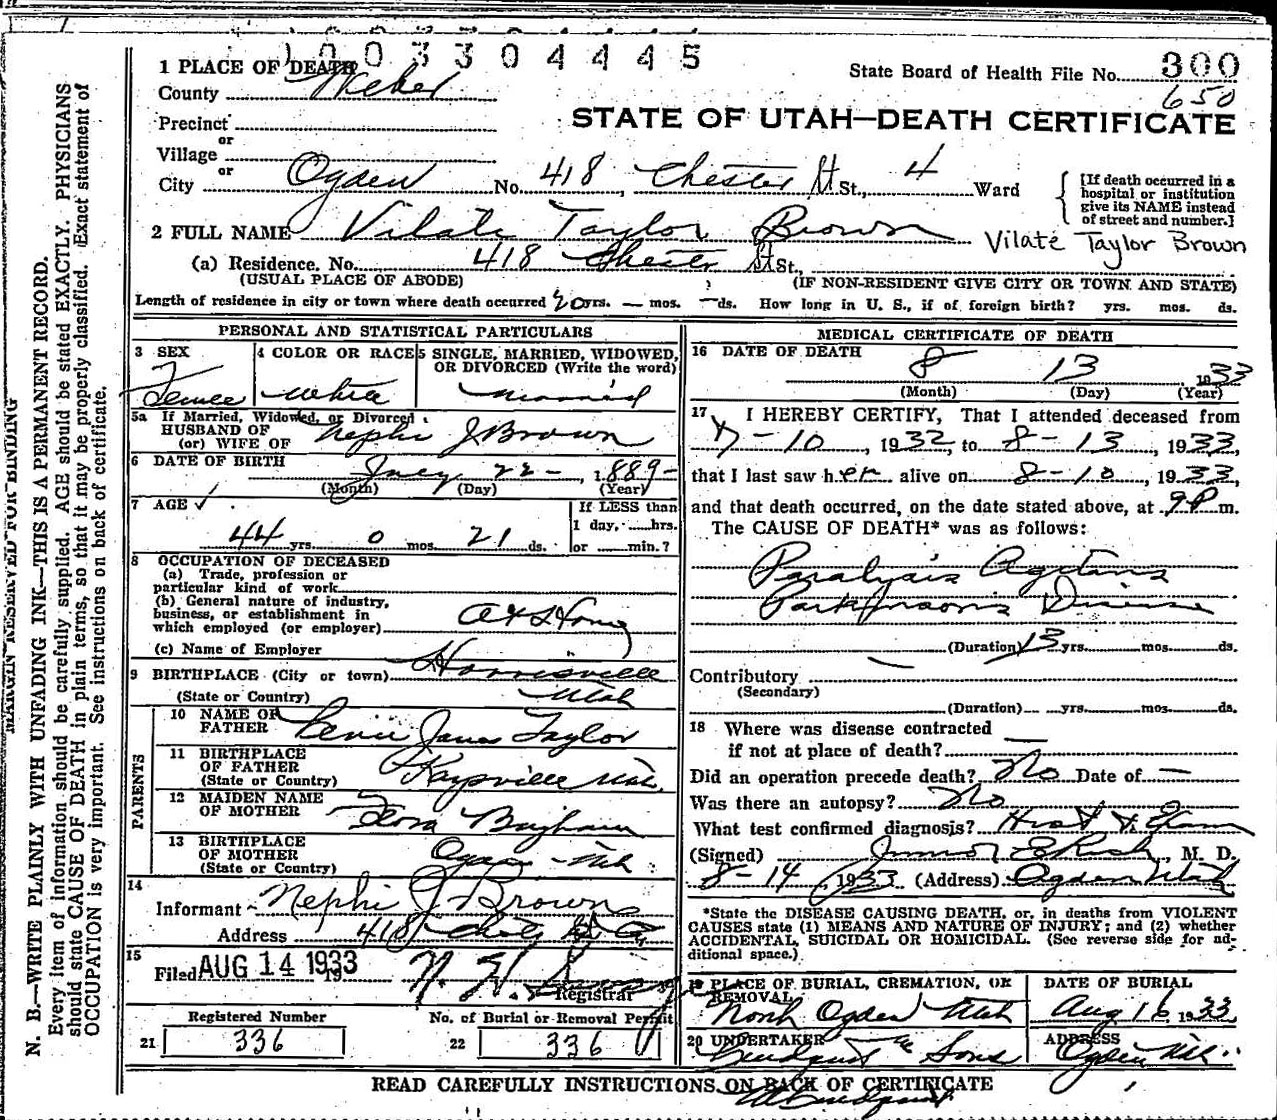 1003304445
State Board of Health File No. 300
650
STATE OF UTAH—DEATH CERTIFICATE
1 PLACE OF DEATH
County Weber
Precinct
or
Village
or
City Ogden No. 418, Chester St St., 4 Ward
[If death occurred in a hospital or institution give its NAME instead of street and number.]
2 FULL NAME Vilate Taylor Brown Vilate Taylor Brown
(a) Residence, No. 418 Chester St St.,
(USUAL PLACE OF ABODE) (IF NON-RESIDENT GIVE CITY OR TOWN AND STATE)
Length of residence in city or town where death occurred 20 yrs. — mos. — ds. How long in U. S., if of foreign birth? yrs. mos. ds.
PERSONAL AND STATISTICAL PARTICULARS
3 SEX 4 COLOR OR RACE 5 SINGLE, MARRIED, WIDOWED, OR DIVORCED (Write the word)
Female White married
5a If Married, Widowed, or Divorced
HUSBAND OF
(or) WIFE OF Nephi J Brown
6 DATE OF BIRTH July 22 -, 1889 -
(Month) (Day) (Year)
7 AGE ✓ If LESS than
1 day, hrs.
44 yrs. 0 mos. 21 ds. or min.?
8 OCCUPATION OF DECEASED
(a) Trade, profession or
particular kind of work
(b) General nature of industry,
business, or establishment in
which employed (or employer) At Home
(c) Name of Employer
9 BIRTHPLACE (City or town) Harrisville
(State or Country) Utah
PARENTS
10 NAME OF
FATHER James Taylor
11 BIRTHPLACE
OF FATHER
(State or Country) Kaysville Utah
12 MAIDEN NAME
OF MOTHER Flora Bingham
13 BIRTHPLACE
OF MOTHER
(State or Country) Ogden - Utah
14
Informant Nephi J Brown
Address 418
15
Filed AUG 14 1933 19
Registrar
Registered Number No. of Burial or Removal Permit
21 336 22 336
MEDICAL CERTIFICATE OF DEATH
16 DATE OF DEATH
8 13 1933
(Month) (Day) (Year)
17 I HEREBY CERTIFY, That I attended deceased from
7-10, 1932, to 8-13, 1933,
that I last saw her alive on 8-10, 1933,
and that death occurred, on the date stated above, at 9P m.
The CAUSE OF DEATH* was as follows:
Paralysis Agitans
Parkinson's Disease
(Duration) 13 yrs. mos. ds.
Contributory —
(Secondary)
(Duration) yrs. mos. ds.
18 Where was disease contracted
if not at place of death? —
Did an operation precede death? No Date of —
Was there an autopsy? No
What test confirmed diagnosis? Hist & Exam
(Signed) Junior E Rich, M. D.
8-14, 1933 (Address) Ogden Utah
*State the DISEASE CAUSING DEATH, or, in deaths from VIOLENT
CAUSES state (1) MEANS AND NATURE OF INJURY; and (2) whether
ACCIDENTAL, SUICIDAL OR HOMICIDAL. (See reverse side for ad-
ditional space.)
19 PLACE OF BURIAL, CREMATION, OR
REMOVAL North Ogden Utah
DATE OF BURIAL
Aug 16 1933
20 UNDERTAKER Lindquist & Sons
ADDRESS
Ogden Utah
READ CAREFULLY INSTRUCTIONS ON BACK OF CERTIFICATE
MARGIN RESERVED FOR BINDING
N. B.—WRITE PLAINLY WITH UNFADING INK—THIS IS A PERMANENT RECORD.
Every item of information should be carefully supplied. AGE should be stated EXACTLY. PHYSICIANS
should state CAUSE OF DEATH in plain terms, so that it may be properly classified. Exact statement of
OCCUPATION is very important. See instructions on back of certificate.